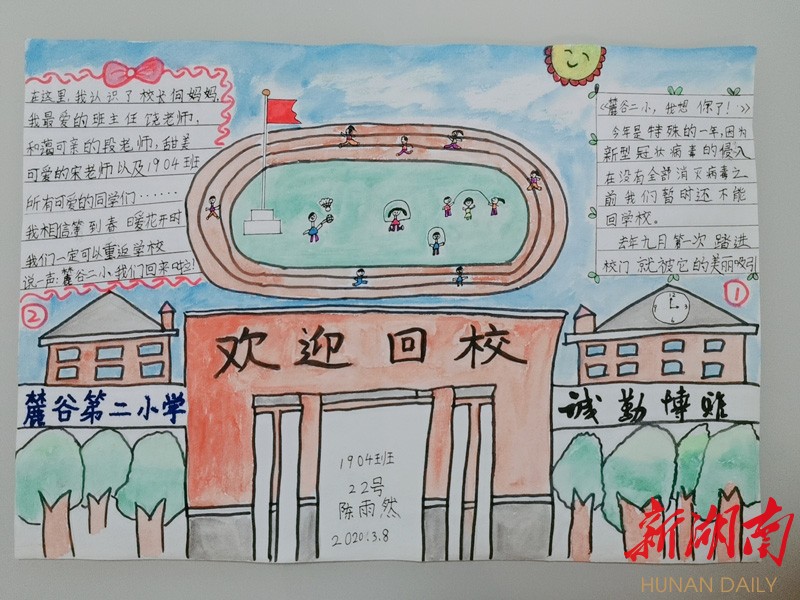 《麓谷二小，我想你了！》
今年是特殊的一年，因为
新型冠状病毒的侵入
在没有全部消灭病毒之
前我们暂时还不能
回学校。
去年九月第一次踏进
校门就被它的美丽吸引
①
在这里，我认识了校长何妈妈，
我最爱的班主任饶老师，
和蔼可亲的段老师，甜美
可爱的宋老师以及1904班
所有可爱的同学们······
我相信等到春暖花开时
我们一定可以重返学校
说一声：麓谷二小我们回来啦！
②
欢迎回校
麓谷第二小学
诚勤博雅
1904班
22号
陈雨然
2020.3.8
新湖南
HUNAN DAILY